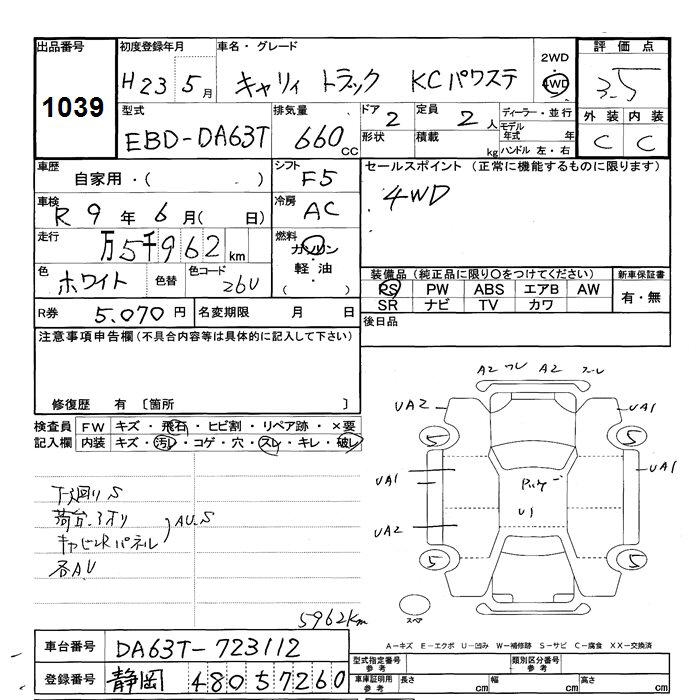 出品番号 初度登録年月 車名・グレード 2WD 評価点
1039 H23 5月 キャリィ トラック KCパワステ 4WD 3.5
型式 排気量 ドア 2 定員 2人 ディーラー・並行 外装 内装
EBD-DA63T 660cc 形状 積載 kg モデル年式 年 ハンドル 左・右 C C
車歴 自家用・( ) シフト F5 セールスポイント (正常に機能するものに限ります)
車検 R9年6月( 日) 冷房 AC 4WD
走行 万5千962km 燃料 ガソリン・軽油( )
色 ホワイト 色替 色コード 26U
装備品(純正品に限り○をつけてください) 新車保証書
PS PW ABS エアB AW 有・無
SR ナビ TV カワ
R券 5.070円 名変期限 月 日 後日品
注意事項申告欄(不具合内容等は具体的に記入して下さい)
修復歴 有 〔箇所 〕
検査員記入欄 FW キズ・飛石・ヒビ割・リペア跡・×要
内装 キズ・汚レ・コゲ・穴・スレ・キレ・破レ
下廻りS
荷台.アオリ
キャビンRパネル AU.S
各AU
5962km
A2 A2
UA2 UA1
5 5
UA1 UA1
U1
UA2
5 5
スペア
A-キズ E-エクボ U-凹み W-補修跡 S-サビ C-腐食 XX-交換済
車台番号 DA63T-723112
登録番号 静岡 480 57260
型式指定番号 参考 類別区分番号 参考
車庫証明用 参考 長さ cm 幅 cm 高さ cm